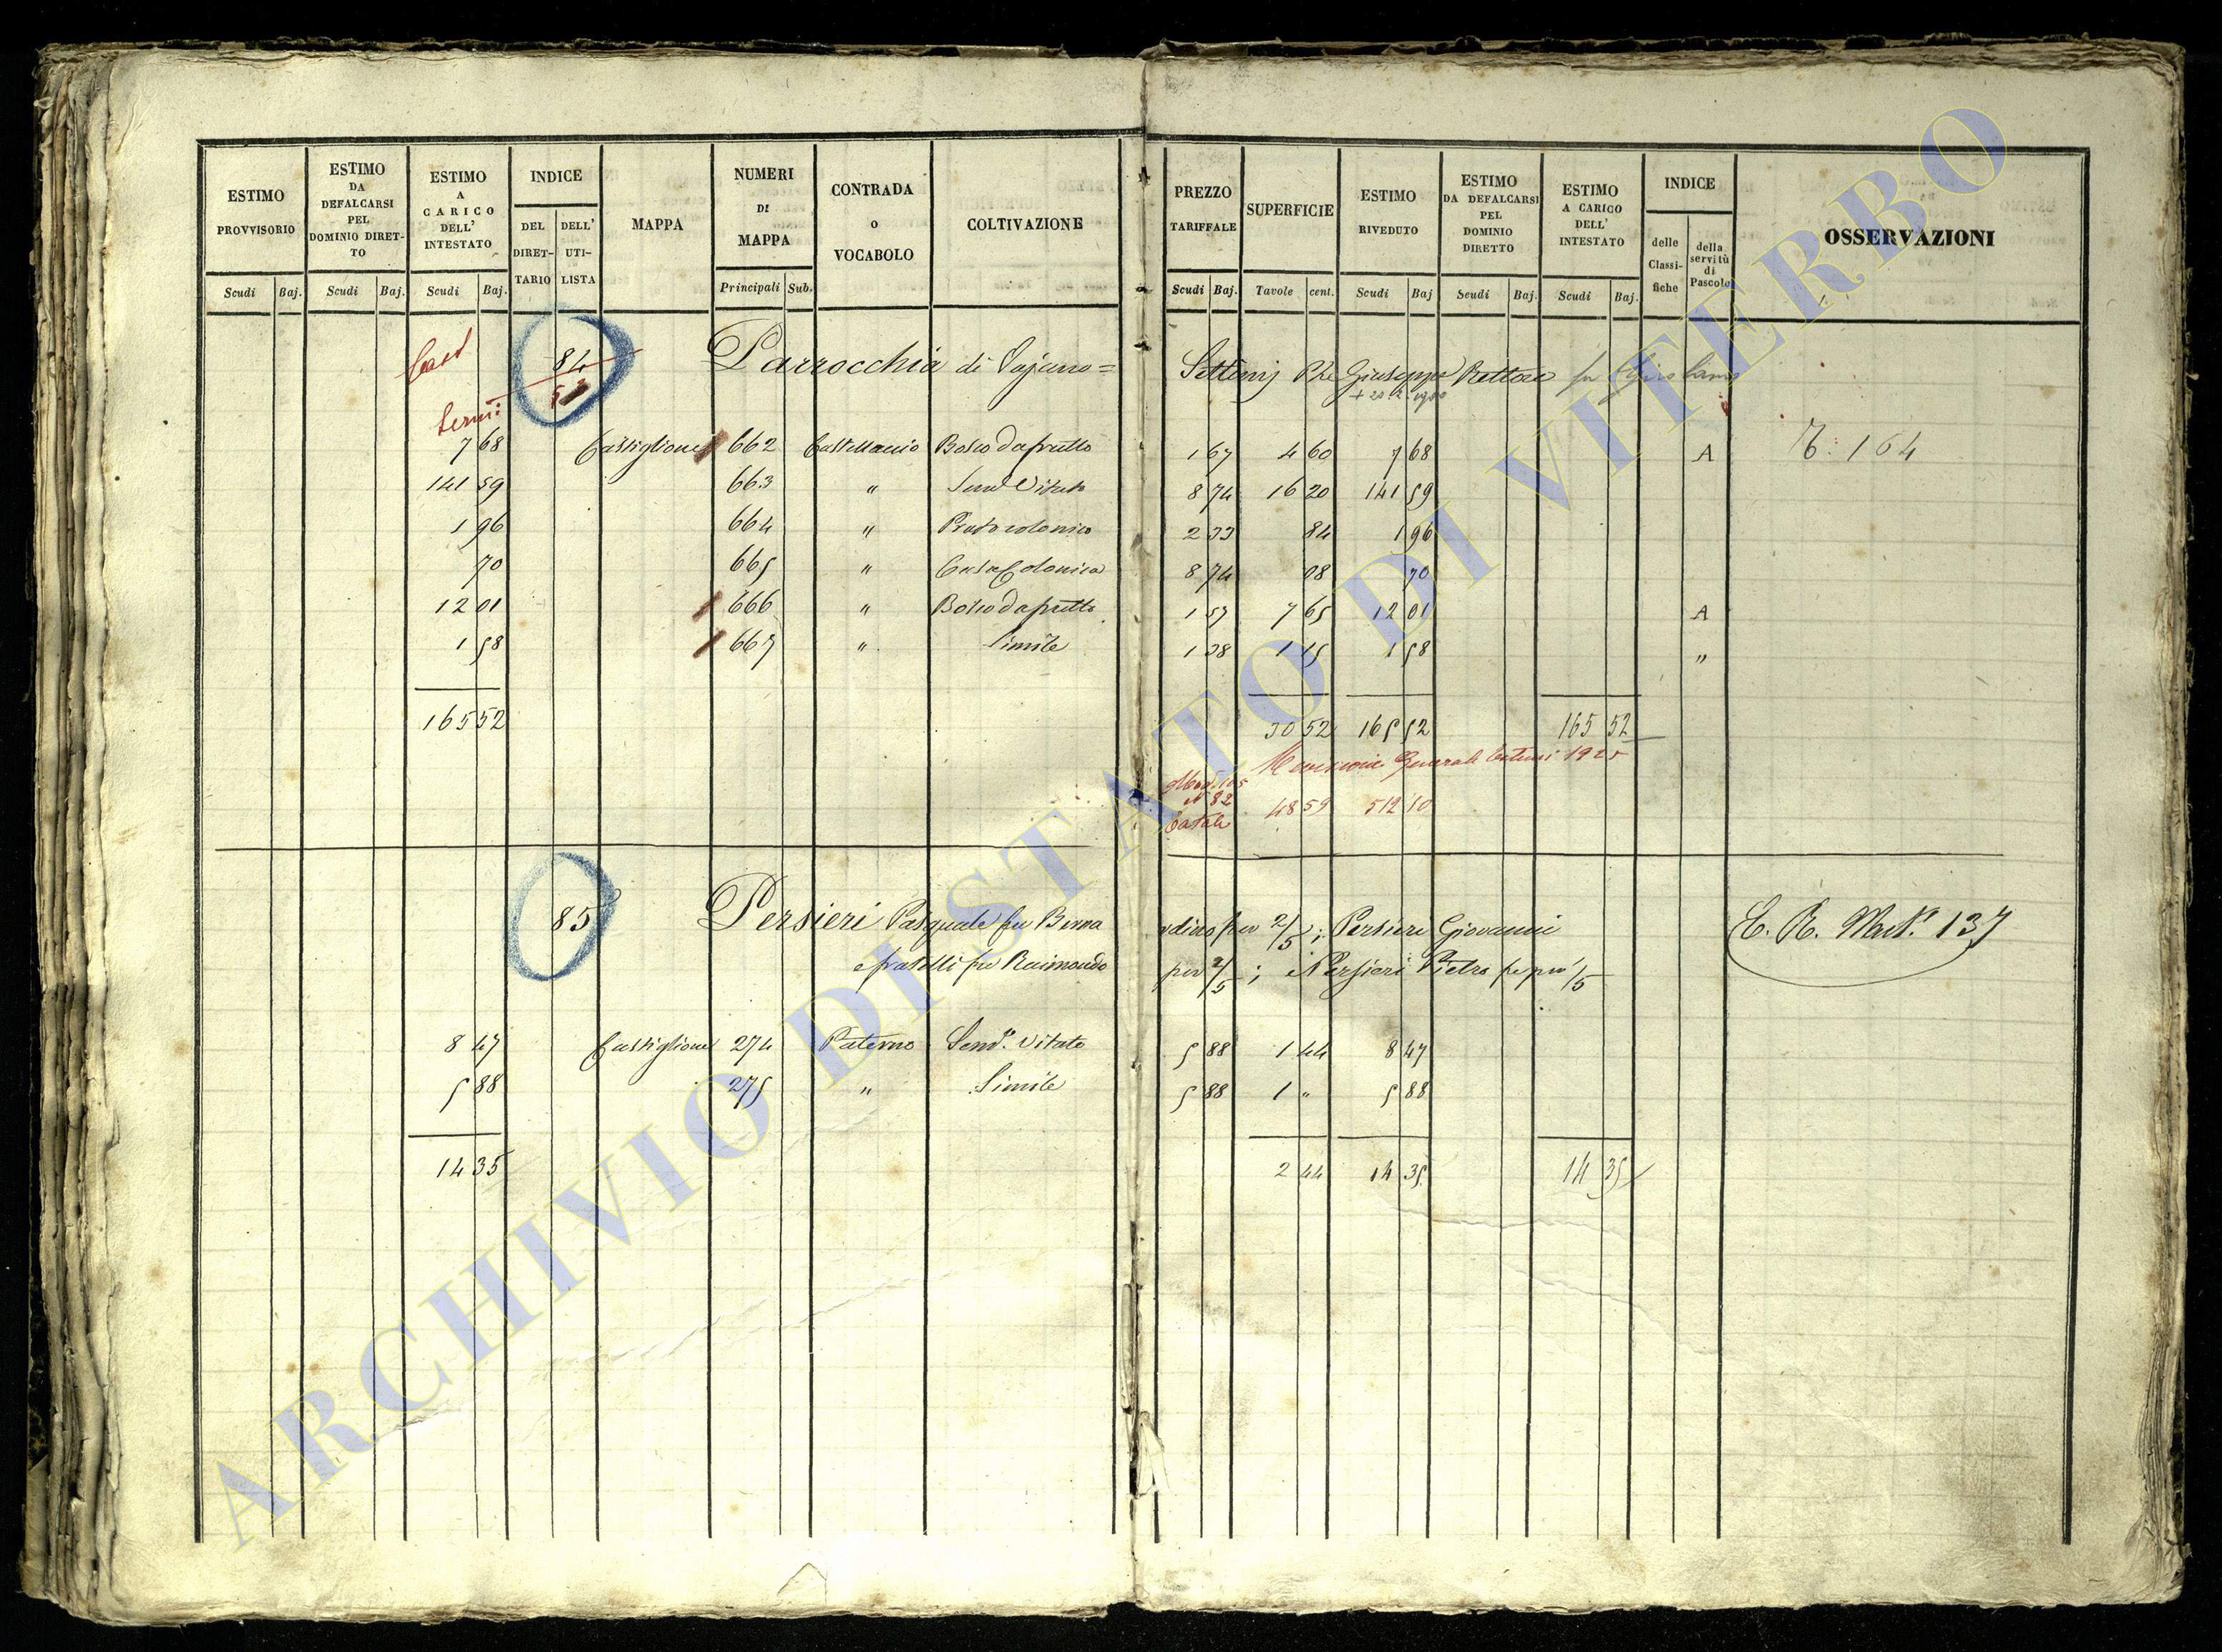 ESTIMO PROVVISORIO | ESTIMO DA DEFALCARSI PEL DOMINIO DIRET-TO | ESTIMO A CARICO DELL' INTESTATO | INDICE DEL DIRET-TARIO | DELL' UTI-LISTA | MAPPA | NUMERI DI MAPPA | CONTRADA o VOCABOLO | COLTIVAZIONE | PREZZO TARIFFALE | SUPERFICIE | ESTIMO RIVEDUTO | ESTIMO DA DEFALCARSI PEL DOMINIO DIRETTO | ESTIMO A CARICO DELL' INTESTATO | INDICE delle Classi-fiche | della servitù di Pascolo | OSSERVAZIONI
Scudi Baj. Scudi Baj. Scudi Baj. Principali Sub. Scudi Baj. Tavole cent. Scudi Baj Scudi Baj. Scudi Baj.
84 Parrocchia di = Giuseppe Rettore fu
+ 20.2.1900
7 68 Castiglione 662 Bosco da frutto 1 67 4 60 7 68 A 164
141 59 663 " Sem.o Vitato 8 74 16 20 141 59
1 96 664 " Prato colonico 2 33 84 1 96
70 665 " Casa Colonica 8 74 08 70
12 01 666 " Bosco da frutto 1 57 7 65 12 01 A
1 58 667 " Simile 1 38 1 15 1 58 "
165 52 30 52 165 52 165 52
Revisione Generale Estimi 1925
N 82
Totale 48 59 512 10
85 Persieri Pasquale fu Berna rdino per 2/5; Persieri Giovanni E. R. Mat. 137
e fratelli fu Raimondo per 2/5; e Persieri Pietro per 1/5
8 47 Castiglione 274 Paterno Sem.o Vitato 5 88 1 44 8 47
5 88 275 " Simile 5 88 1 " 5 88
14 35 2 44 14 35 14 35
ARCHIVIO DI STATO DI VITERBO